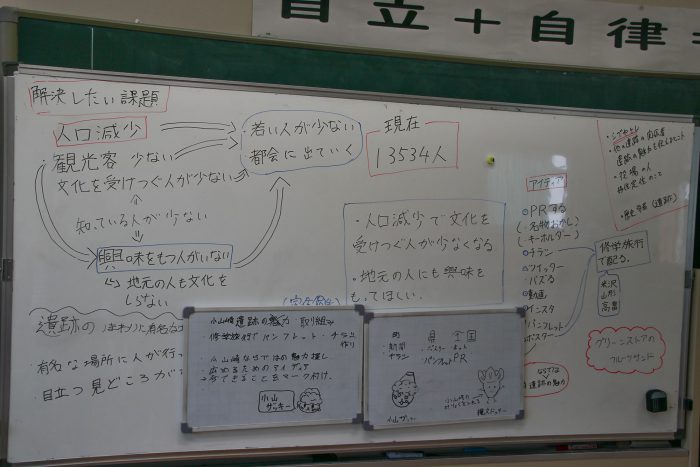 自立＋自律
解決したい課題
人口減少
・観光客 少ない
文化を受けつぐ人が少ない
知っている人が少ない
興味をもつ人がいない
地元の人も文化を
しらない
・若い人が少ない
都会に出ていく
現在
13534人
・人口減少で文化を
受けつぐ人が少なくなる
・地元の人にも興味を
もってほしい。
遺跡の
有名な場所に人が行っ
・目立つ見どころが
小山崎遺跡の魅力 取り組み
修学旅行でパンフレット・チラシ
作り
小山崎ならではの魅力探し
広めるためのアイデア
今できることをマーク付け。
小山
ザッキー
町 県 全国
・新聞
・チラシ
パンフレットPR
小山ザッキー
縄文ドッキー
アイディア
PRする
・名物おかし
・キーホルダー
チラシ
ツイッター
・バズる
動画
インスタ
パンフレット
ポスター
修学旅行
で配る。
米沢
山形
高畠
・他の遺跡の関係者
・役場の人
グリーンストアの
フルーツサンド
ならでは
遺跡の魅力